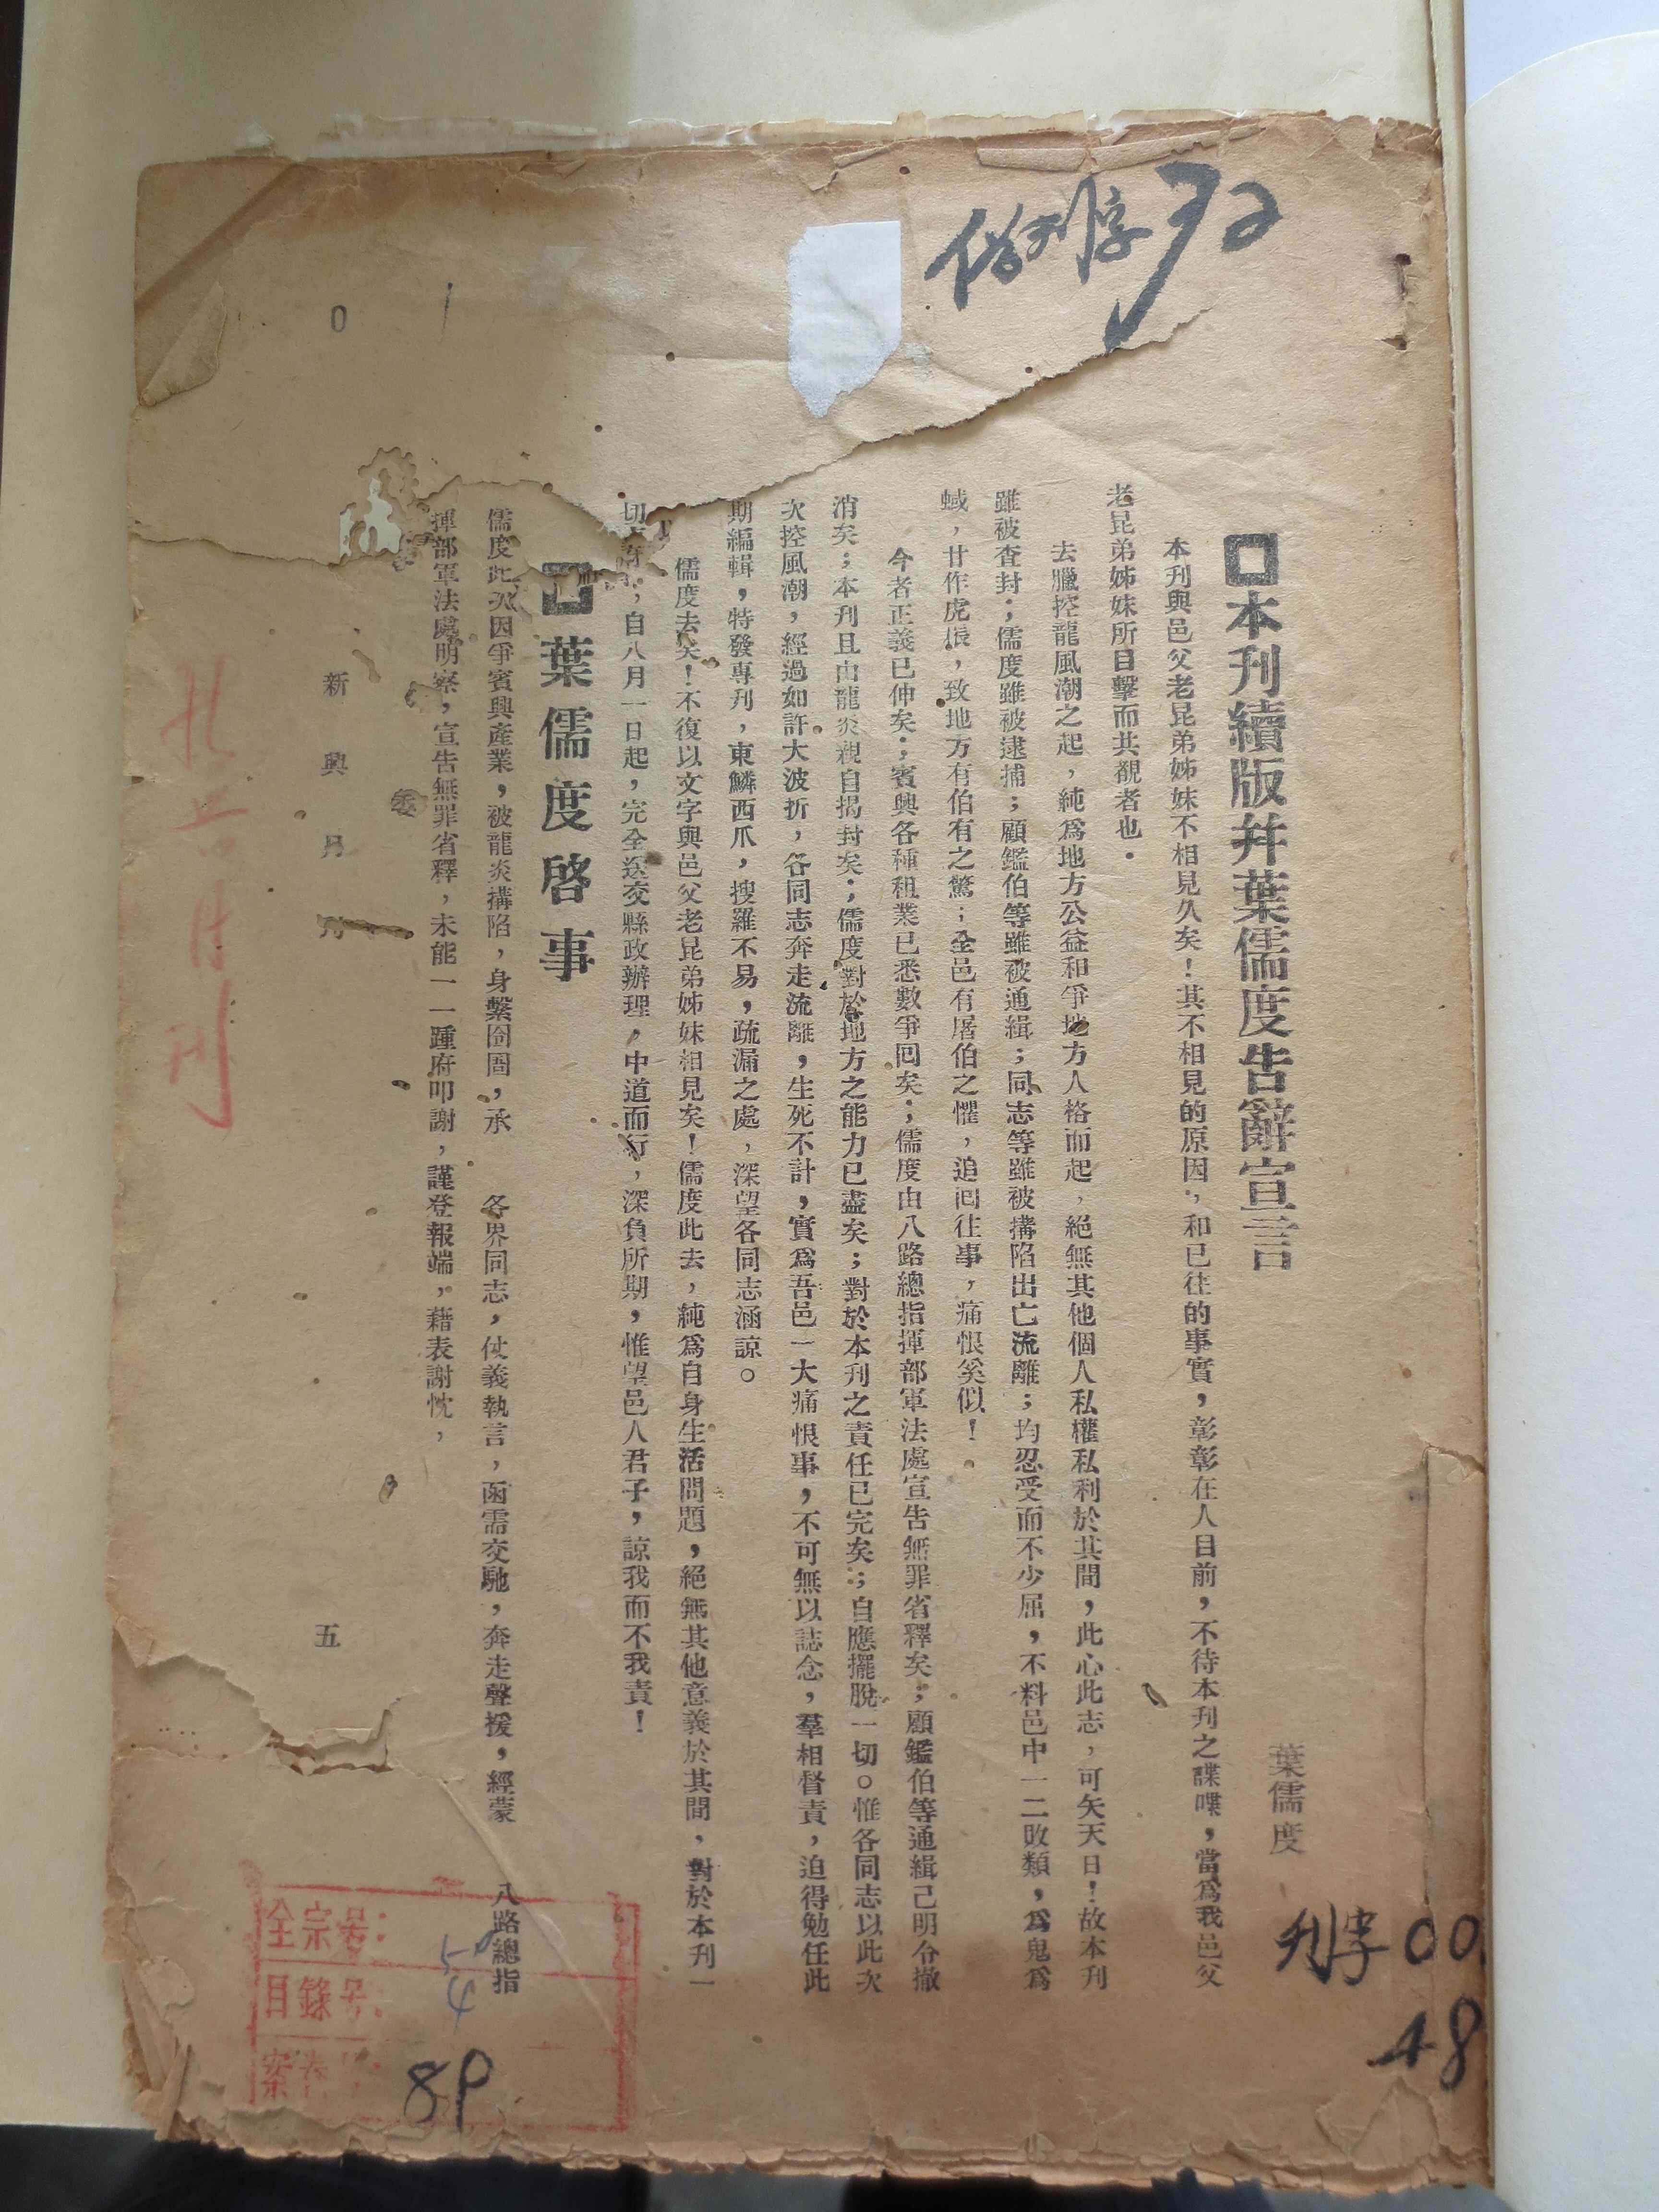 本刊續版并葉儒度告辭宣言
葉儒度
本刊與邑父老昆弟姊妹不相見久矣！其不相見的原因，和已往的事實，彰彰在人目前，不待本刊之諜喋，當爲我邑父
老昆弟姊妹所目擊而共覩者也．
去臘控龍風潮之起，純爲地方公益和爭地方人格而起，絕無其他個人私權私利於其間，此心此志，可矢天日！故本刊
雖被查封；儒度雖被逮捕；顧鑑伯等雖被通緝；同志等雖被搆陷出亡流離；均忍受而不少屈，不料邑中一二敗類，爲鬼爲
蜮，甘作虎倀，致地方有伯有之驚；全邑有屠伯之懼，追囘往事，痛恨奚似！
今者正義已伸矣；賓興各種租業已悉數爭回矣；儒度由八路總指揮部軍法處宣告無罪省釋矣；顧鑑伯等通緝已明令撤
消矣；本刊且由龍炎親自揭封矣；儒度對於地方之能力已盡矣；對於本刊之責任已完矣；自應擺脫一切。惟各同志以此次
次控風潮，經過如許大波折，各同志奔走流離，生死不計，實爲吾邑一大痛恨事，不可無以誌念，羣相督責，迫得勉任此
期編輯，特發專刊，東鱗西爪，搜羅不易，疏漏之處，深望各同志涵諒。
儒度去矣！不復以文字與邑父老昆弟姊妹相見矣！儒度此去，純爲自身生活問題，絕無其他意義於其間，對於本刊一
切；自八月一日起，完全送交縣政辦理，中道而行，深負所期，惟望邑人君子，諒我而不我責！
葉儒度啓事
儒度此次因爭賓興產業，被龍炎搆陷，身繫囹圄，承　各界同志，仗義執言，函需交馳，奔走聲援，經蒙　八路總指
揮部軍法處明察，宣告無罪省釋，未能一一踵府叩謝，謹登報端，藉表謝忱，
新興月刊
五
刊字 00
48
全宗号：
54
目錄号：
案卷号：
89